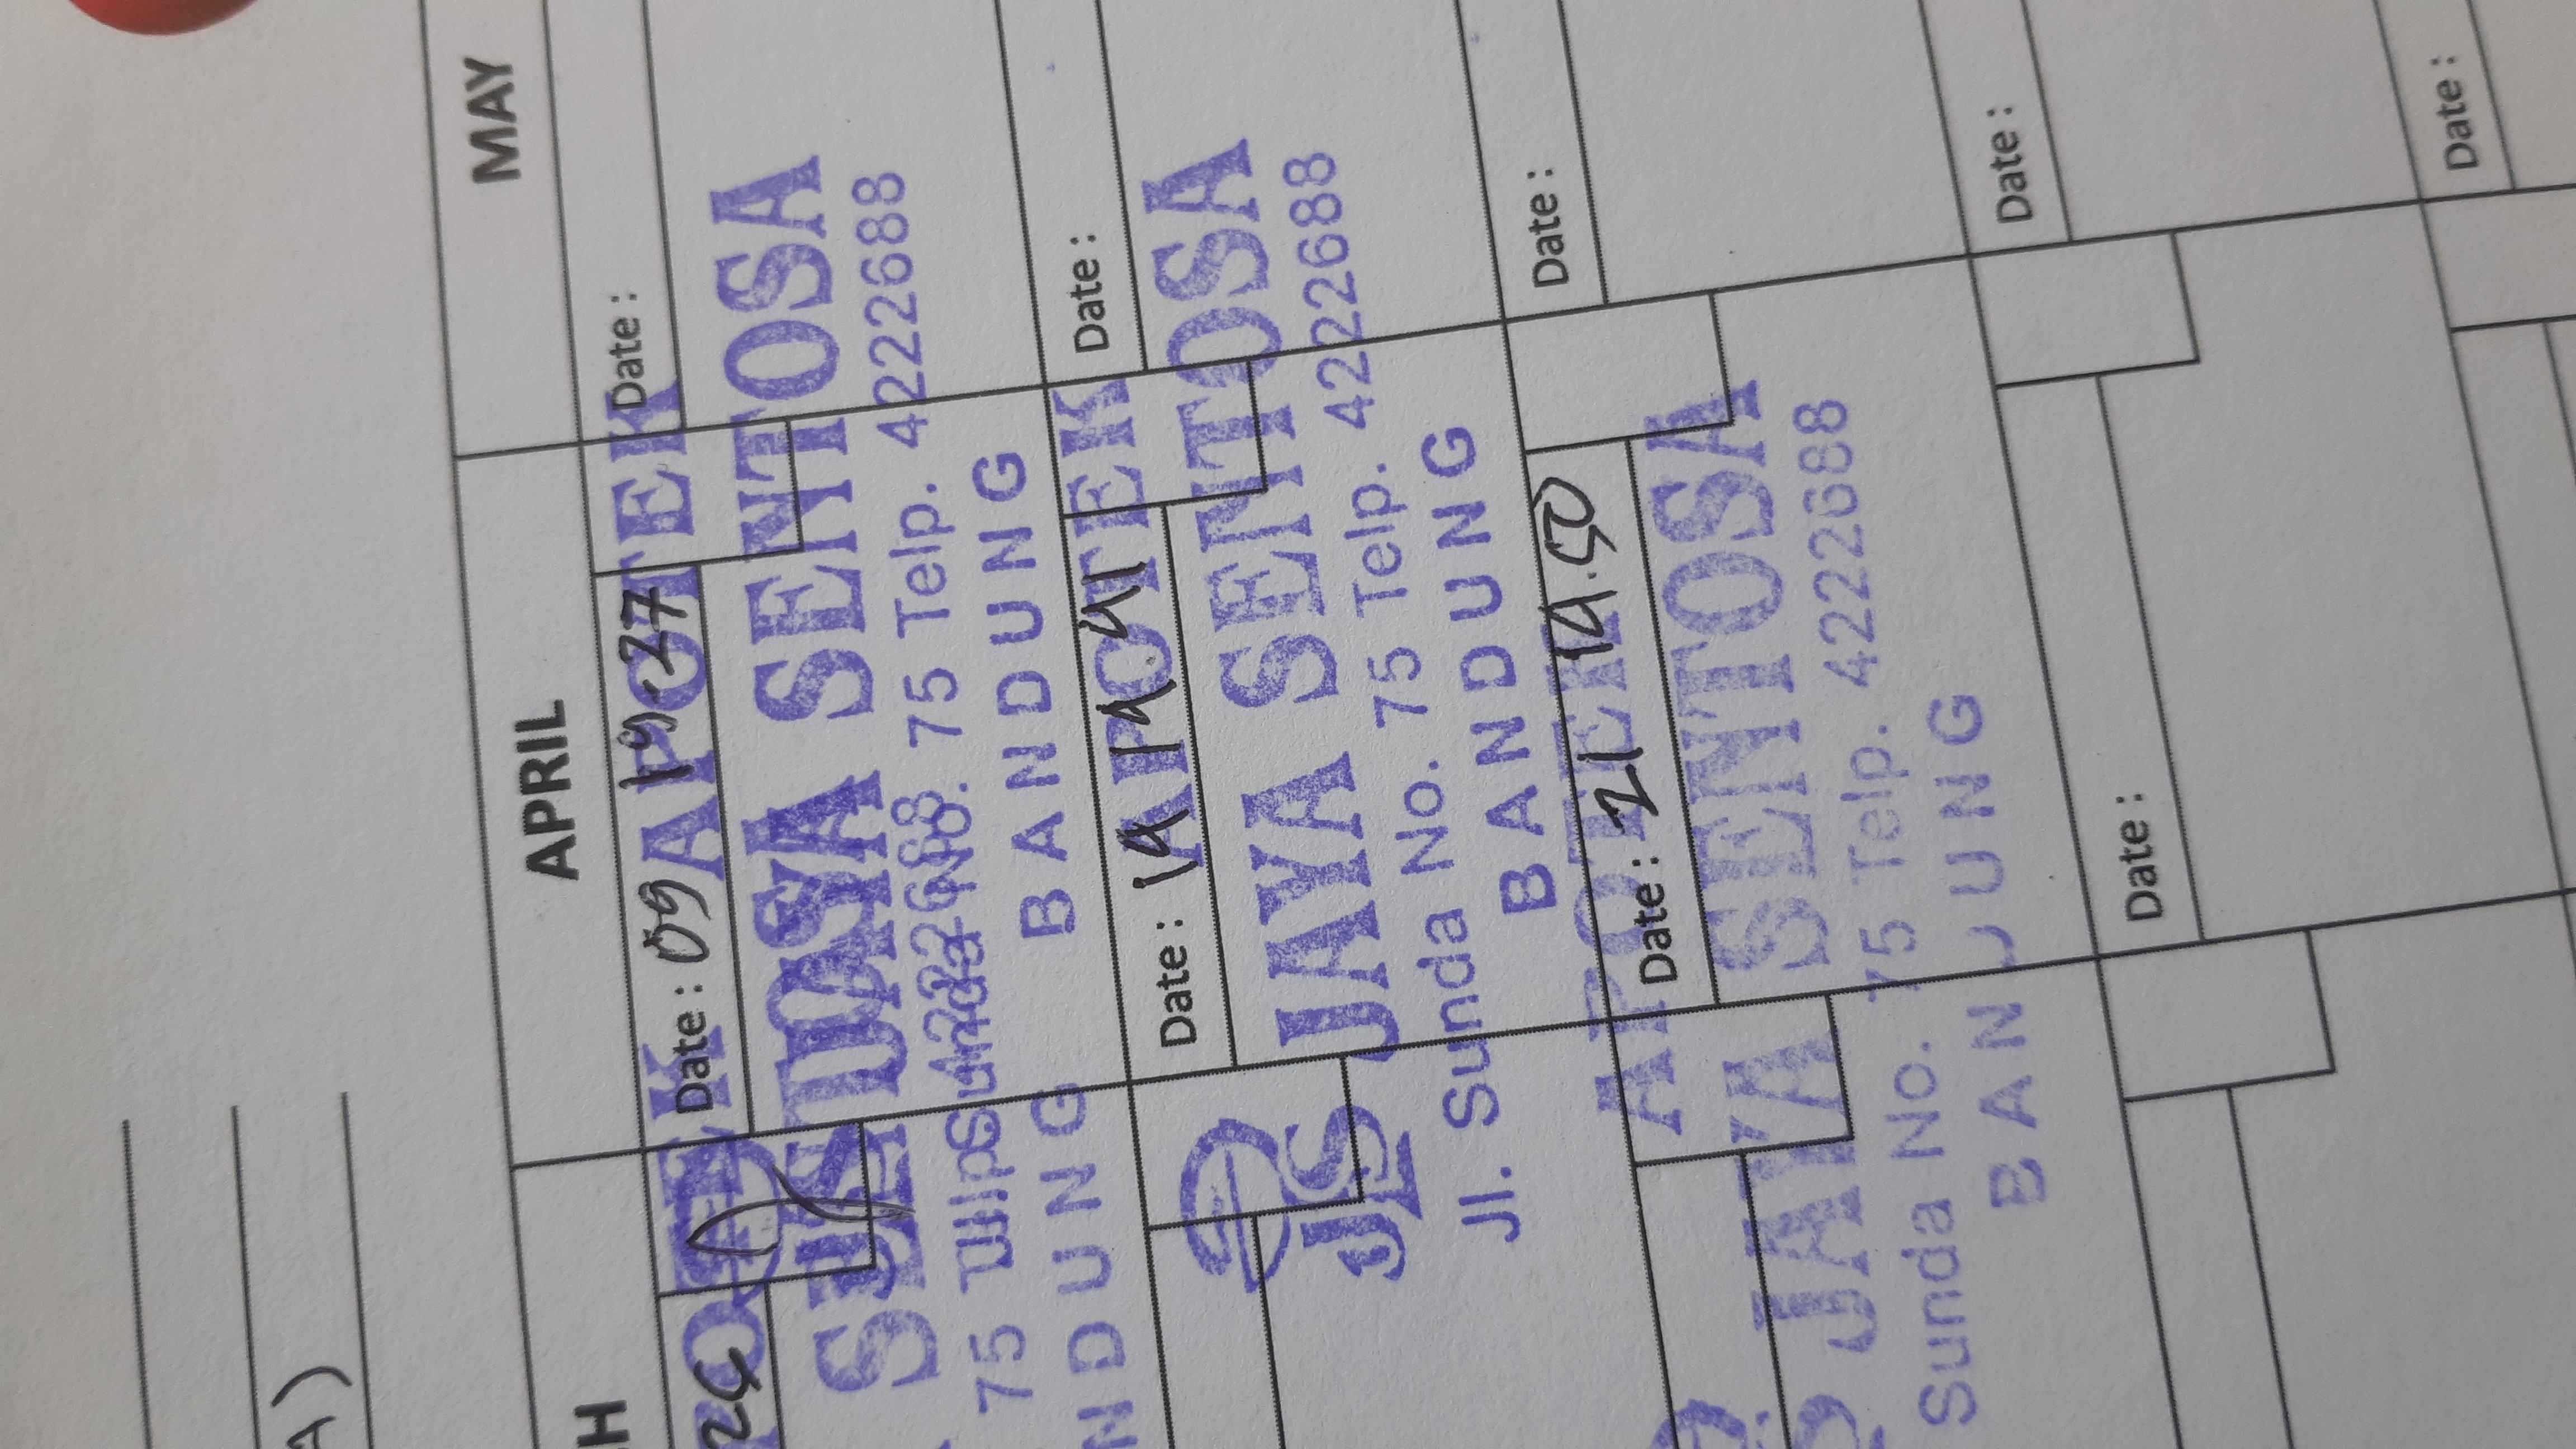 A)
H
APRIL
MAY
24
Date : 09 19.27
Date :
APOTEK
JAYA SENTOSA
Sunda No. 75 Telp. 4222688
BANDUNG
75 Telp. 4222688
NDUNG
Date : 19
Date :
APOTEK
JAYA SENTOSA
JS
Jl. Sunda No. 75 Telp. 4222688
BANDUNG
Date : 21 19.50
Date :
APOTEK
JAYA SENTOSA
Sunda No. 75 Telp. 4222688
BANDUNG
Date :
Date :
Date :